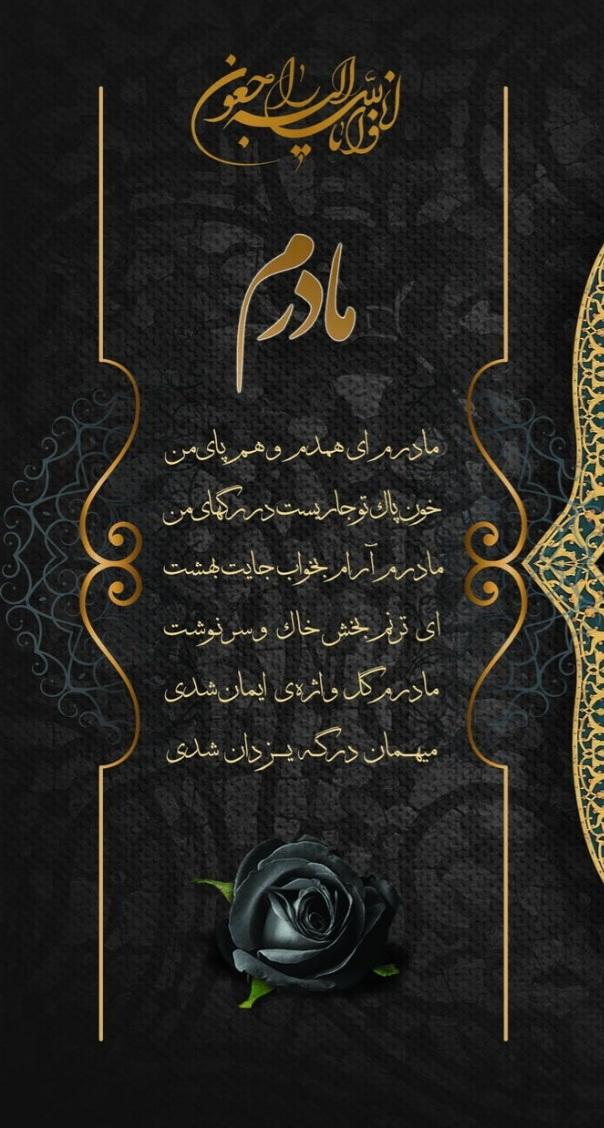 انا لله و انا الیه راجعون
مادرم
مادرم ای همدم و هم پای من
خون پاک تو جاریست در رگهای من
مادرم آرام بخواب جایت بهشت
ای ترنم بخش خاک و سرنوشت
مادرم گل واژه‌ی ایمان شدی
میهمان درگه یزدان شدی